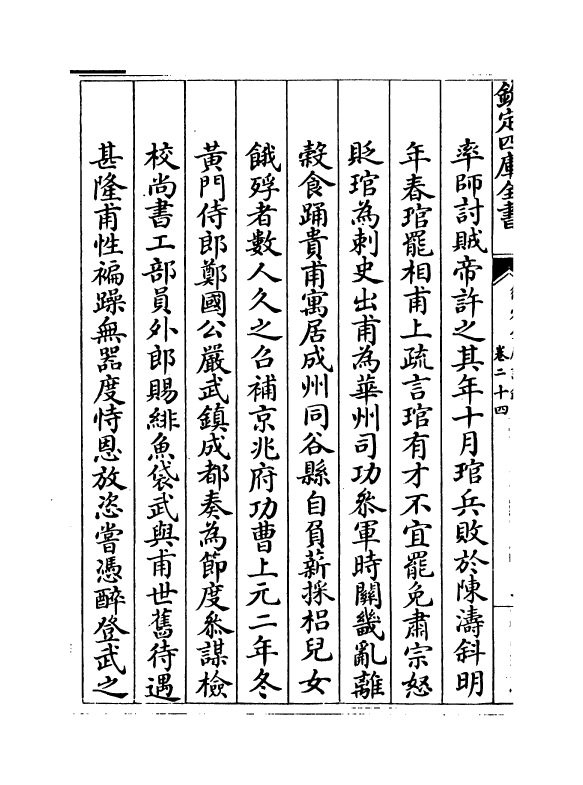 欽定四庫全書
卷二十四
率師討賊帝許之其年十月琯兵敗於陳濤斜明
年春琯罷相甫上疏言琯有才不宜罷免肅宗怒
貶琯為刺史出甫為華州司功叅軍時關畿亂離
榖食踊貴甫寓居成州同谷縣自負薪採梠兒女
餓殍者數人久之召補京兆府功曹上元二年冬
黃門侍郎鄭國公嚴武鎮成都奏為節度叅謀檢
校尚書工部員外郎賜緋魚袋武與甫世舊待遇
甚隆甫性褊躁無器度恃恩放恣嘗憑醉登武之